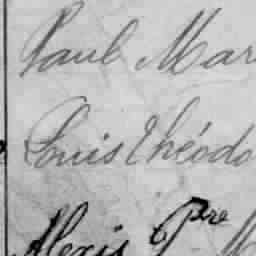 Paul Mar
Louis Théodo
Alexis